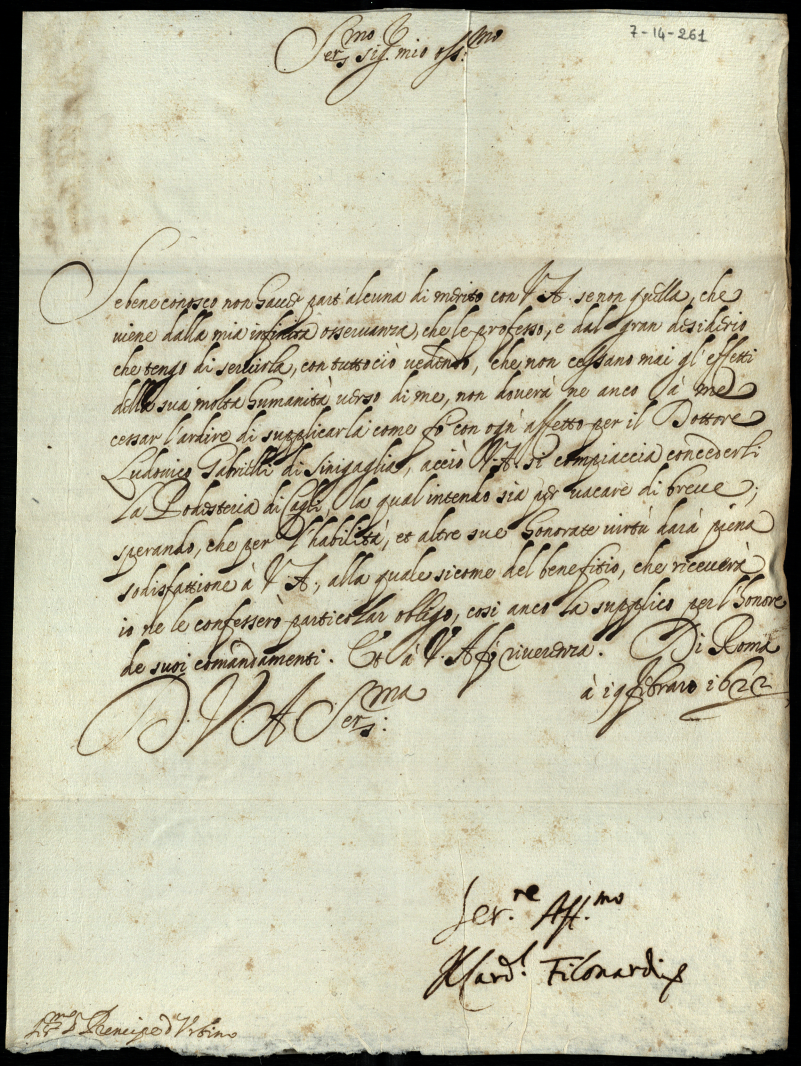 7-14-261
Ser.mo sig.r mio oss.mo
Se bene conosco non haver part'alcuna di merito con V.A. se non quella, che
viene dalla mia infinita osservanza, che le professo, e dal gran desiderio
che tengo di servirla, con tutto ciò vedendo, che non cessano mai gl'effetti
della sua molta humanità verso di me, non doverà ne anco à me
cessar l'ardire di supplicarla come fo con ogn'affetto per il Dottore
Ludovico Gabrielli di Sinigaglia, acciò V.A. si compiaccia concederli
la Podesteria di Cagli, la qual intendo sia per vacare di breve;
sperando, che per l'habilità, et altre sue honorate virtù darà piena
sodisfattione à V.A., alla quale sicome del benefitio, che riceverà
io ne le confesserò particolar obligo, così anco la supplico per l'honore
de suoi comandamenti. Et à V.A. fo riverenza. Di Roma
à 19 febraro 1622
D. V. A. Ser.ma
Ser.re Aff.mo
Il Card.l Filonardi
S.r Prencipe d'Urbino